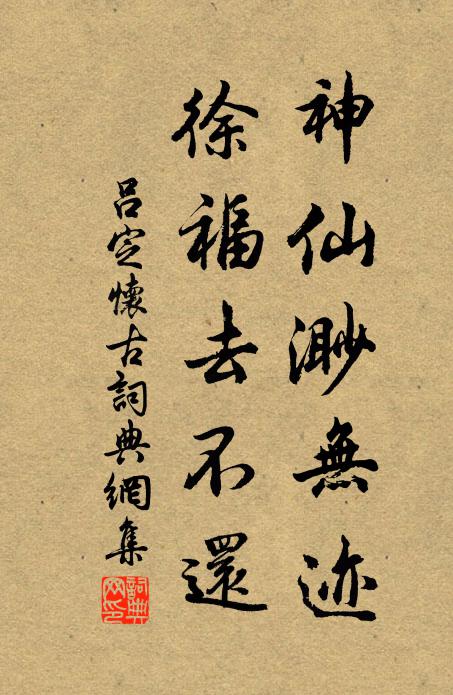 神仙渺無迹
徐福去不還
呂定懷古詞典網集
詞典網印